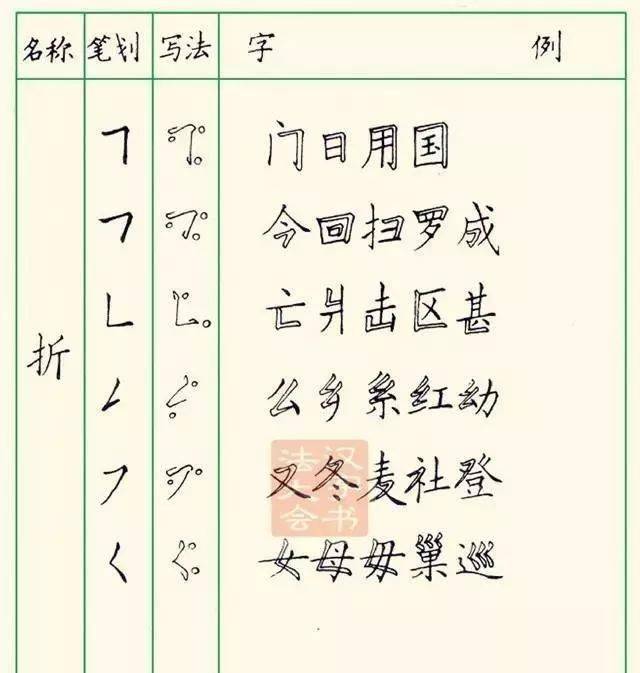 名称 笔划 写法 字 例
折
门日用国
今回扫罗成
亡爿击区甚
么乡系红幼
又冬麦社登
女母毋巢巡
汉字书法大会